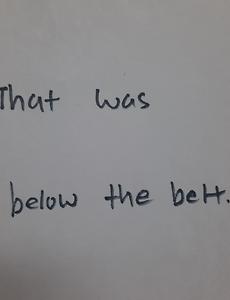 That was
below the belt.